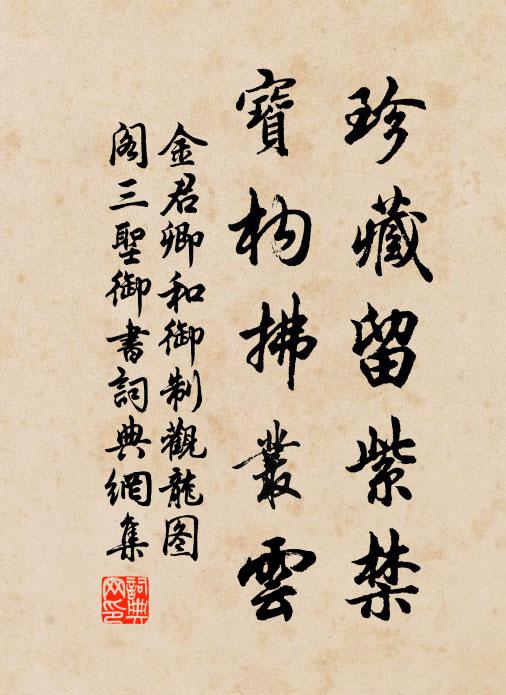 珍藏留紫禁
寶构拂叢雲
金君卿和御制觀龍图
阁三聖御書詞典網集
詞典网印